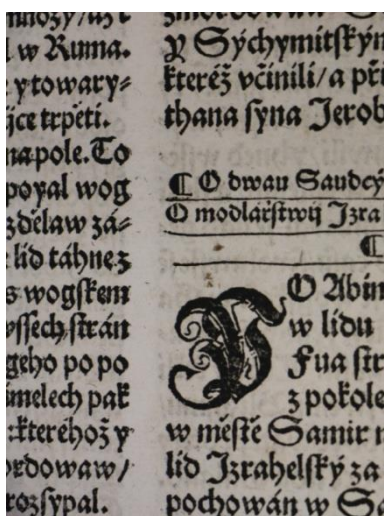 w Ruma.
ytowary⸗
gíce trpěti.
na pole. To
pogal wog
zdělaw zá⸗
lid táhne z
s wogſkem
wſſech ſtrán
geho po po
imelech pak
kteréhož y
ordowaw/
rozſypal.
y Sýchymitſkým
kteréž včinili/ a při
thana ſyna Jerob
¶ O dwau Saudcý
O modlářſtwij Jzra
¶
PO Abim
w lidu
Fua ſtr
z pokole
w měſtě Samir
lid Jzrahelſký za
pochowán w Sa